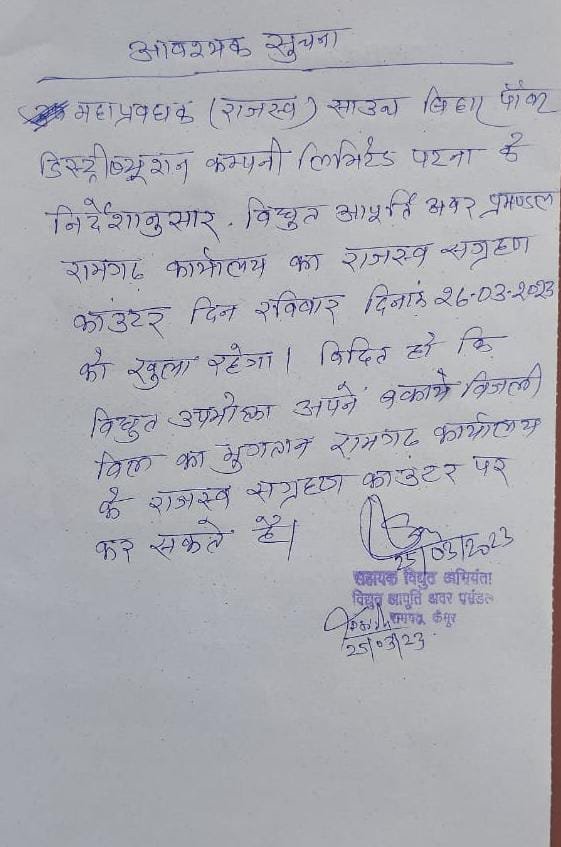 आवश्यक सूचना
महाप्रबधक (राजस्व) साउथ बिहार पॉवर
डिस्ट्रीब्यूशन कम्पनी लिमिटेड पटना के
निर्देशानुसार . विधुत आपूर्ति अवर प्रमण्डल
रामगढ कार्यालय का राजस्व सग्रहण
काउंटर दिन रविवार दिनांक 26-03-2023
को खुला रहेगा। विदित हो कि
विधुत उपभोक्ता अपने बकाये बिजली
बिल का भुगतान रामगढ कार्यालय
के राजस्व सग्रहण काउंटर पर
कर सकते है।
25/03/2023
सहायक विद्युत अभियंता
विद्युत आपूर्ति अवर प्रमंडल
रामगढ़ कैमूर
25/03/23